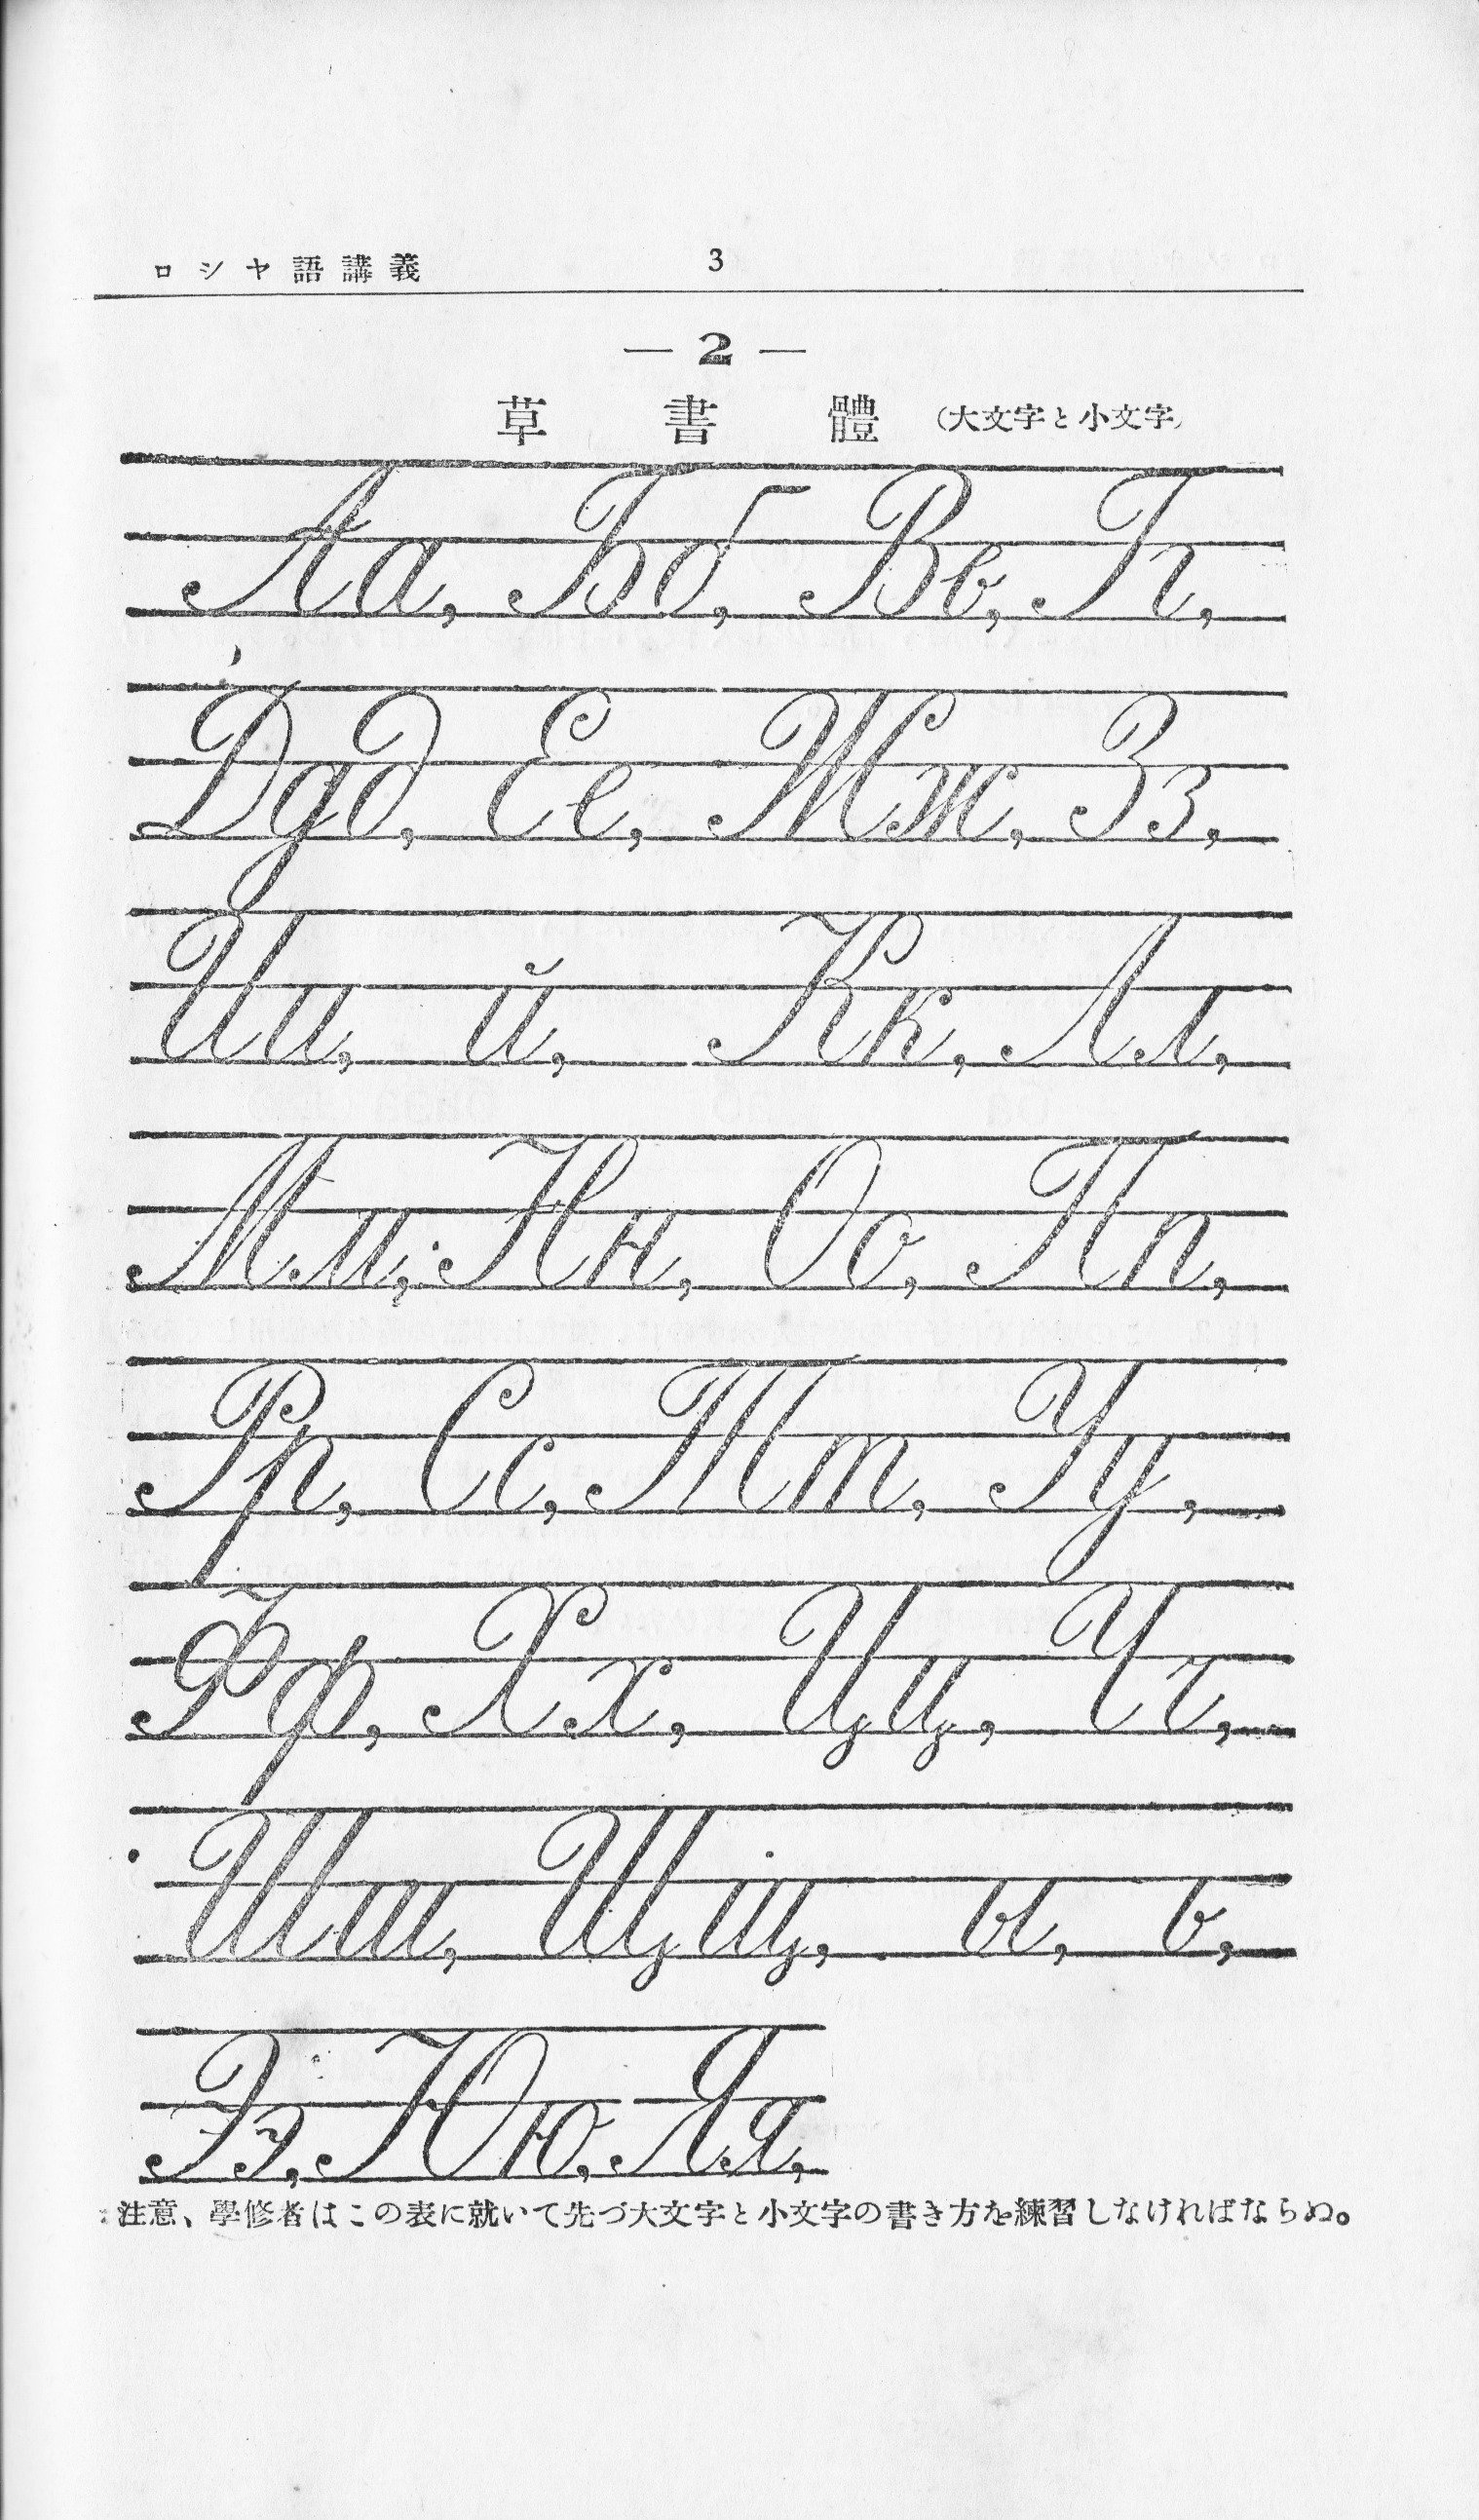 ロシヤ語講義 3
— 2 —
草書體 (大文字と小文字)
Аа, Бб, Вв, Гг,
Ддд, Ее, Жж, Зз,
Ии, й, Кк, Лл,
Мм, Нн, Оо, Пп,
Рр, Сс, Тт, Уу,
Фф, Хх, Цц, Чч,
Шш, Щщ, ы, ь,
Ээ, Юю, Яя,
注意、學修者はこの表に就いて先づ大文字と小文字の書き方を練習しなければならぬ。